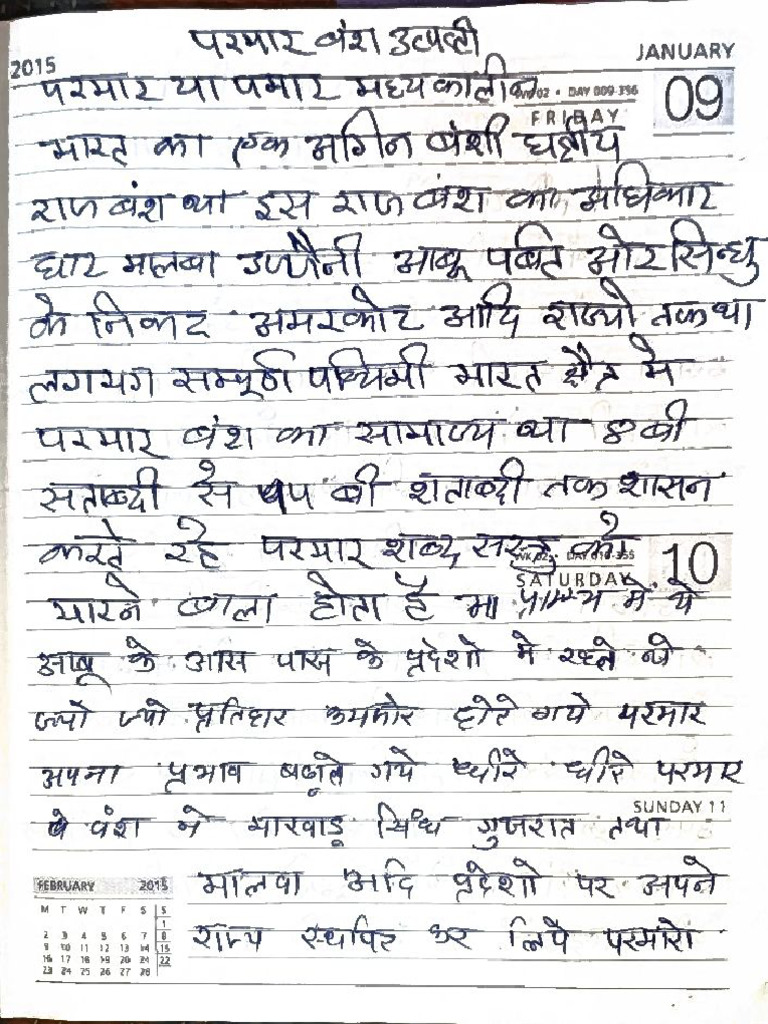 परमार बंश उत्पत्ती
2015
JANUARY
परमार या पमार मध्य कालीन
WK 02 • DAY 009-356
09
FRIDAY
भारत का एक अगिन बंशी छत्रीय
राज बंश था इस राज बंश का अधिकार
धार मालबा उज्जैनी आबू पर्बत ओर सिन्धु
के निकट अमरकोट आदि राज्यो तक था
लगभग सम्पूर्ण पश्चिमी भारत क्षैत्र मे
परमार बंश का सामाज्य था 8 बी
सताब्दी से बी शताब्दी तक शासन
करते रहे परमार शब्द को
WK 02 • DAY 010-355
10
SATURDAY
मारने बाला होता है प्रारम्भ मे ये
आबू के आस पास के प्रदेशो मे रहते थे
ज्यो ज्यो प्रतिहार कमजोर होते गये परमार
अपना प्रभाव बढ़ाते गये धीरे धीरे परमार
SUNDAY 11
वंश ने मारवाड़ सिंध गुजरात तथा
मालवा आदि प्रदेशो पर अपने
राज्य स्थापित कर लिये परमारो
FEBRUARY 2015
M T W T F S S
1
2 3 4 5 6 7 8
9 10 11 12 13 14 15
16 17 18 19 20 21 22
23 24 25 26 27 28